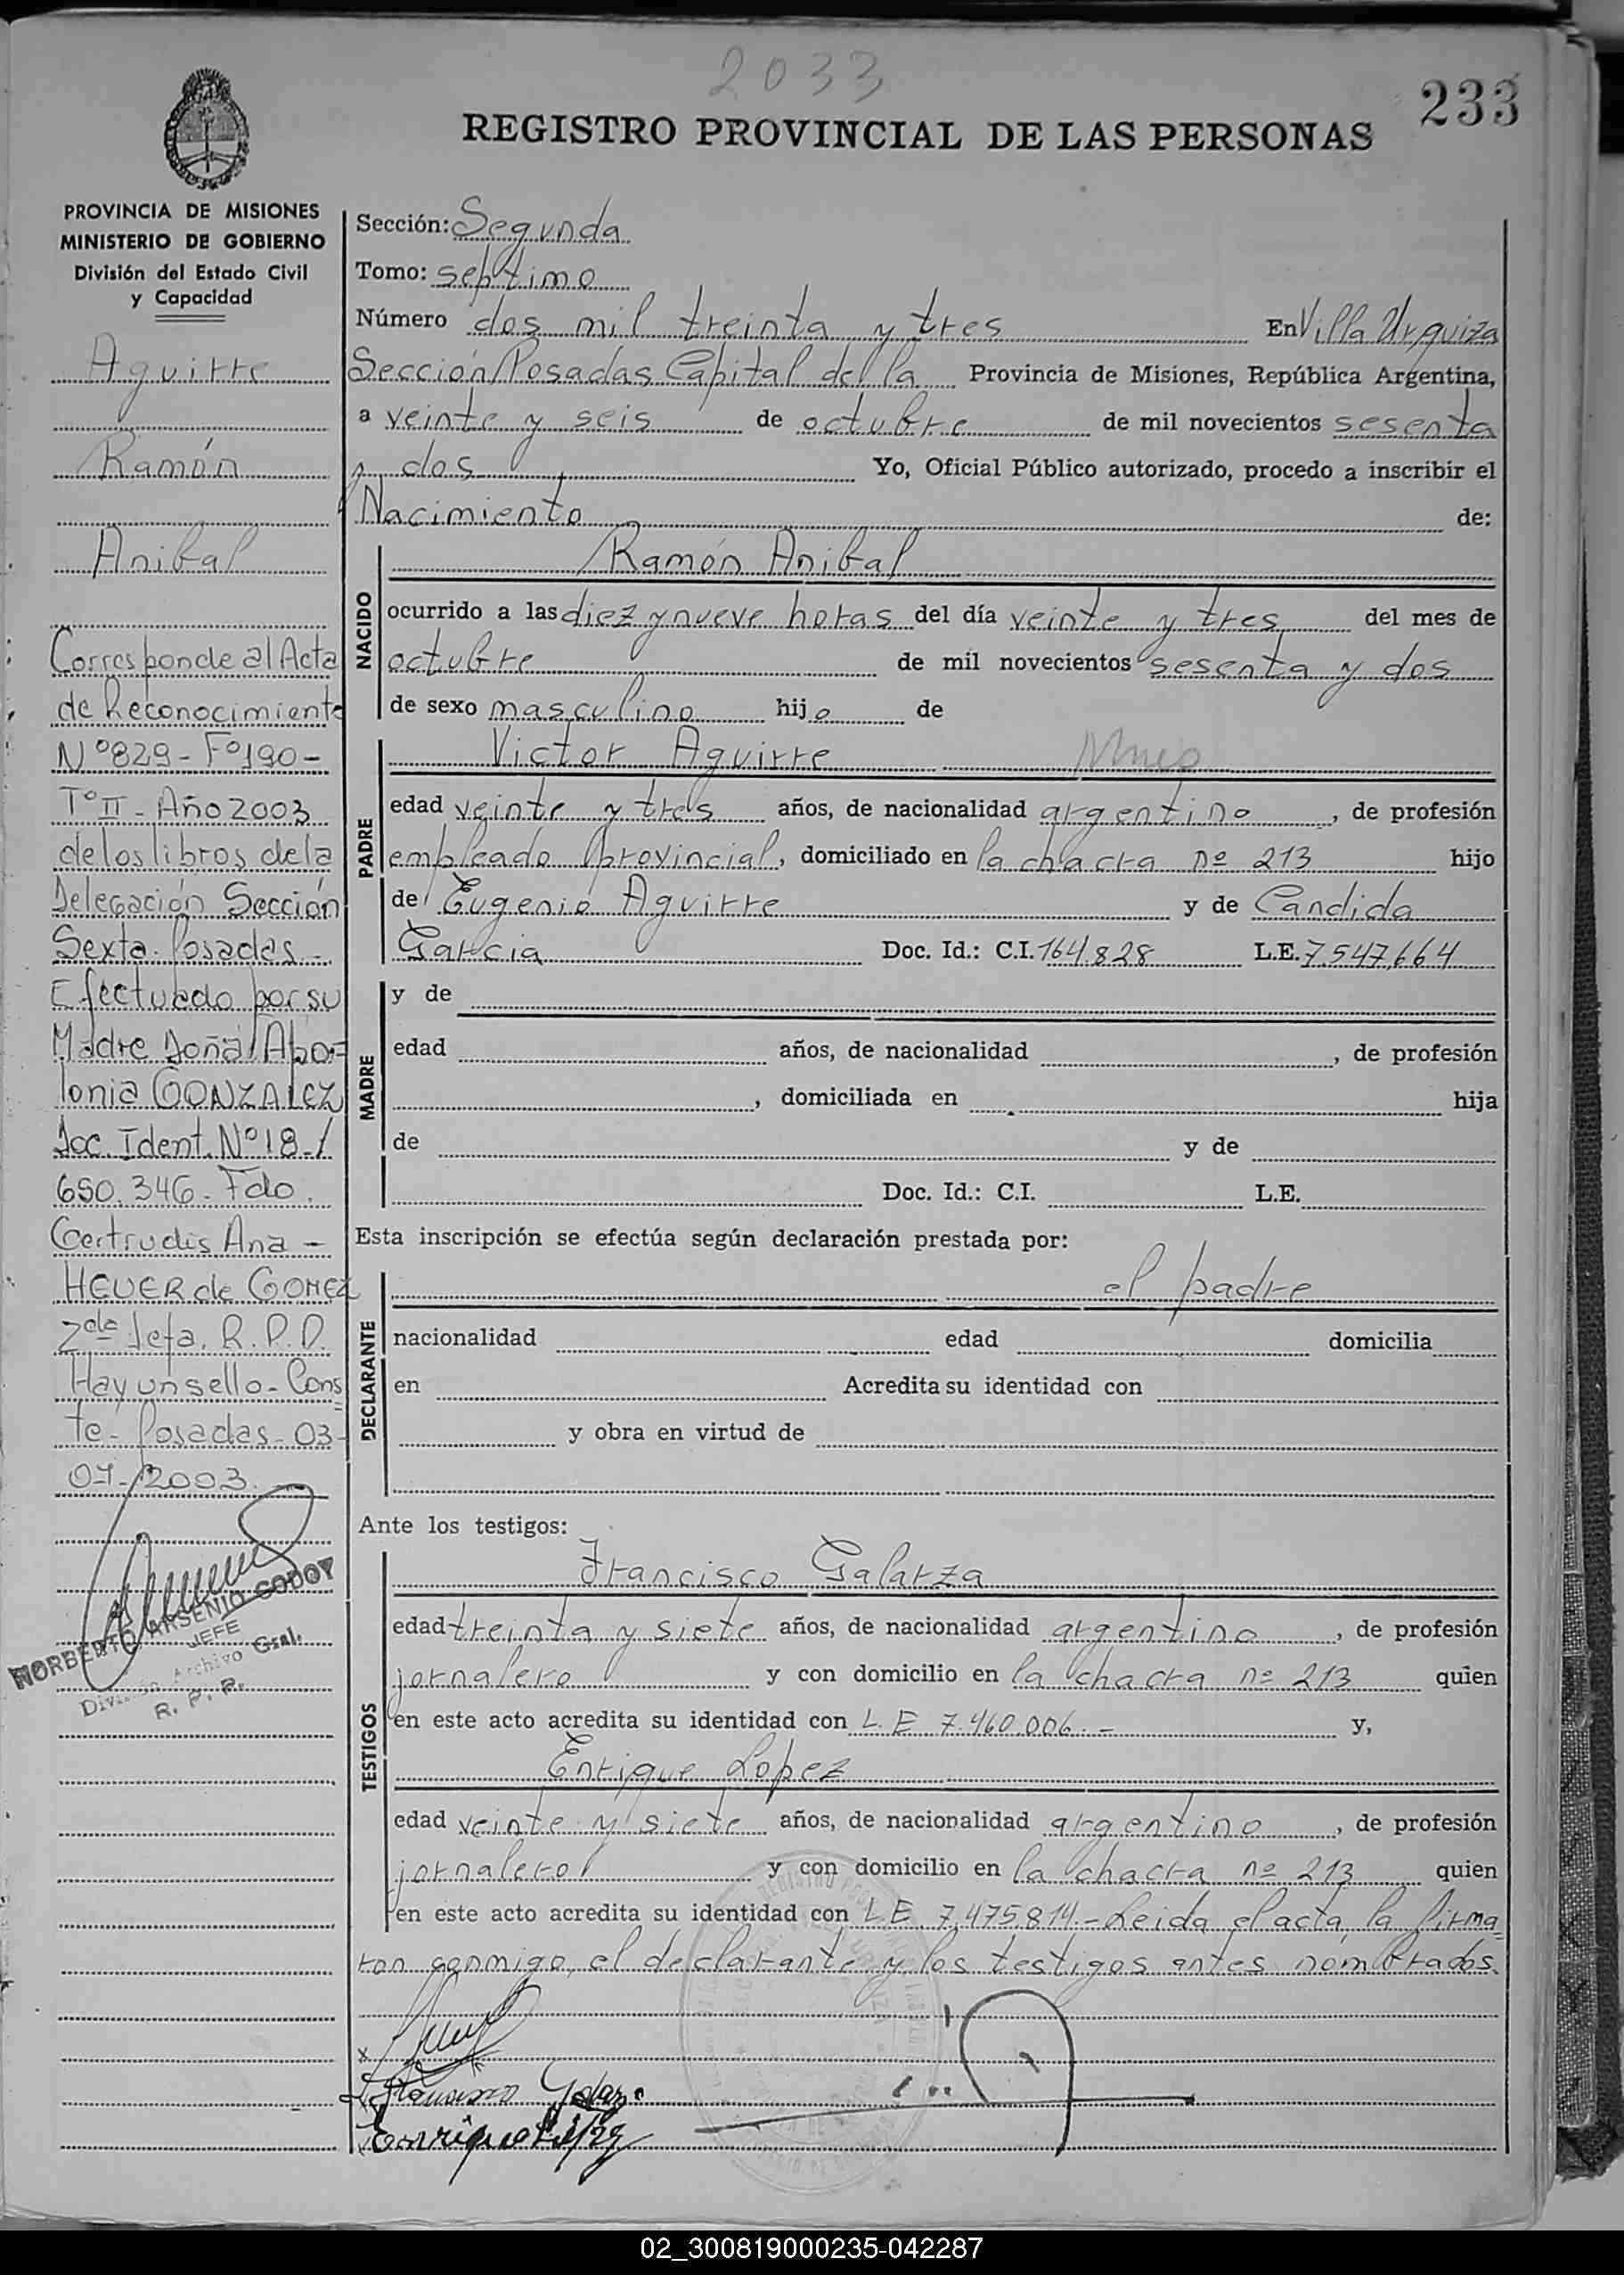 2033
233
REGISTRO PROVINCIAL DE LAS PERSONAS
PROVINCIA DE MISIONES
MINISTERIO DE GOBIERNO
División del Estado Civil
y Capacidad
Aguirre
Ramón
Anibal
Corresponde al Acta
de Reconocimiento
Nº 829 - Fº 190 -
Tº II - Año 2003
de los libros de la
Delegación Sección
Sexta - Posadas -
Efectuado por su
Madre Doña Apo=
lonia GONZALEZ
Doc. Ident. Nº 18-/
650.346 - Fdo.
Gertrudis Ana -
HEUER de GOMEZ
2da Jefa. R.P.P.
Hay un sello - Cons=
te - Posadas - 03-
07-/2003.
NORBERTO ARSENIO GODOY
JEFE
División Archivo Gral.
R. P. P.
Sección: Segunda
Tomo: septimo
Número dos mil treinta y tres En Villa Urquiza
Sección Posadas Capital de la Provincia de Misiones, República Argentina,
a veinte y seis de octubre de mil novecientos sesenta
y dos Yo, Oficial Público autorizado, procedo a inscribir el
Nacimiento de:
NACIDO
Ramón Anibal
ocurrido a las diez y nueve horas del día veinte y tres del mes de
octubre de mil novecientos sesenta y dos
de sexo masculino hijo de
PADRE
Victor Aguirre
edad veinte y tres años, de nacionalidad argentino, de profesión
empleado provincial, domiciliado en la chacra nº 213 hijo
de Eugenio Aguirre y de Candida
Garcia Doc. Id.: C.I. 164.828 L.E. 7.547.664
MADRE
y de
edad años, de nacionalidad , de profesión
, domiciliada en hija
de y de
Doc. Id.: C.I. L.E.
Esta inscripción se efectúa según declaración prestada por:
DECLARANTE
el padre
nacionalidad edad domicilia
en Acredita su identidad con
y obra en virtud de
Ante los testigos:
TESTIGOS
Francisco Galarza
edad treinta y siete años, de nacionalidad argentino, de profesión
jornalero y con domicilio en la chacra nº 213 quien
en este acto acredita su identidad con L.E 7.460.006.- y,
Enrique Lopez
edad veinte y siete años, de nacionalidad argentino, de profesión
jornalero y con domicilio en la chacra nº 213 quien
en este acto acredita su identidad con L.E. 7.475.814.- Leida el acta, la firma=
ron conmigo, el declarante y los testigos antes nombrados.
02_300819000235-042287